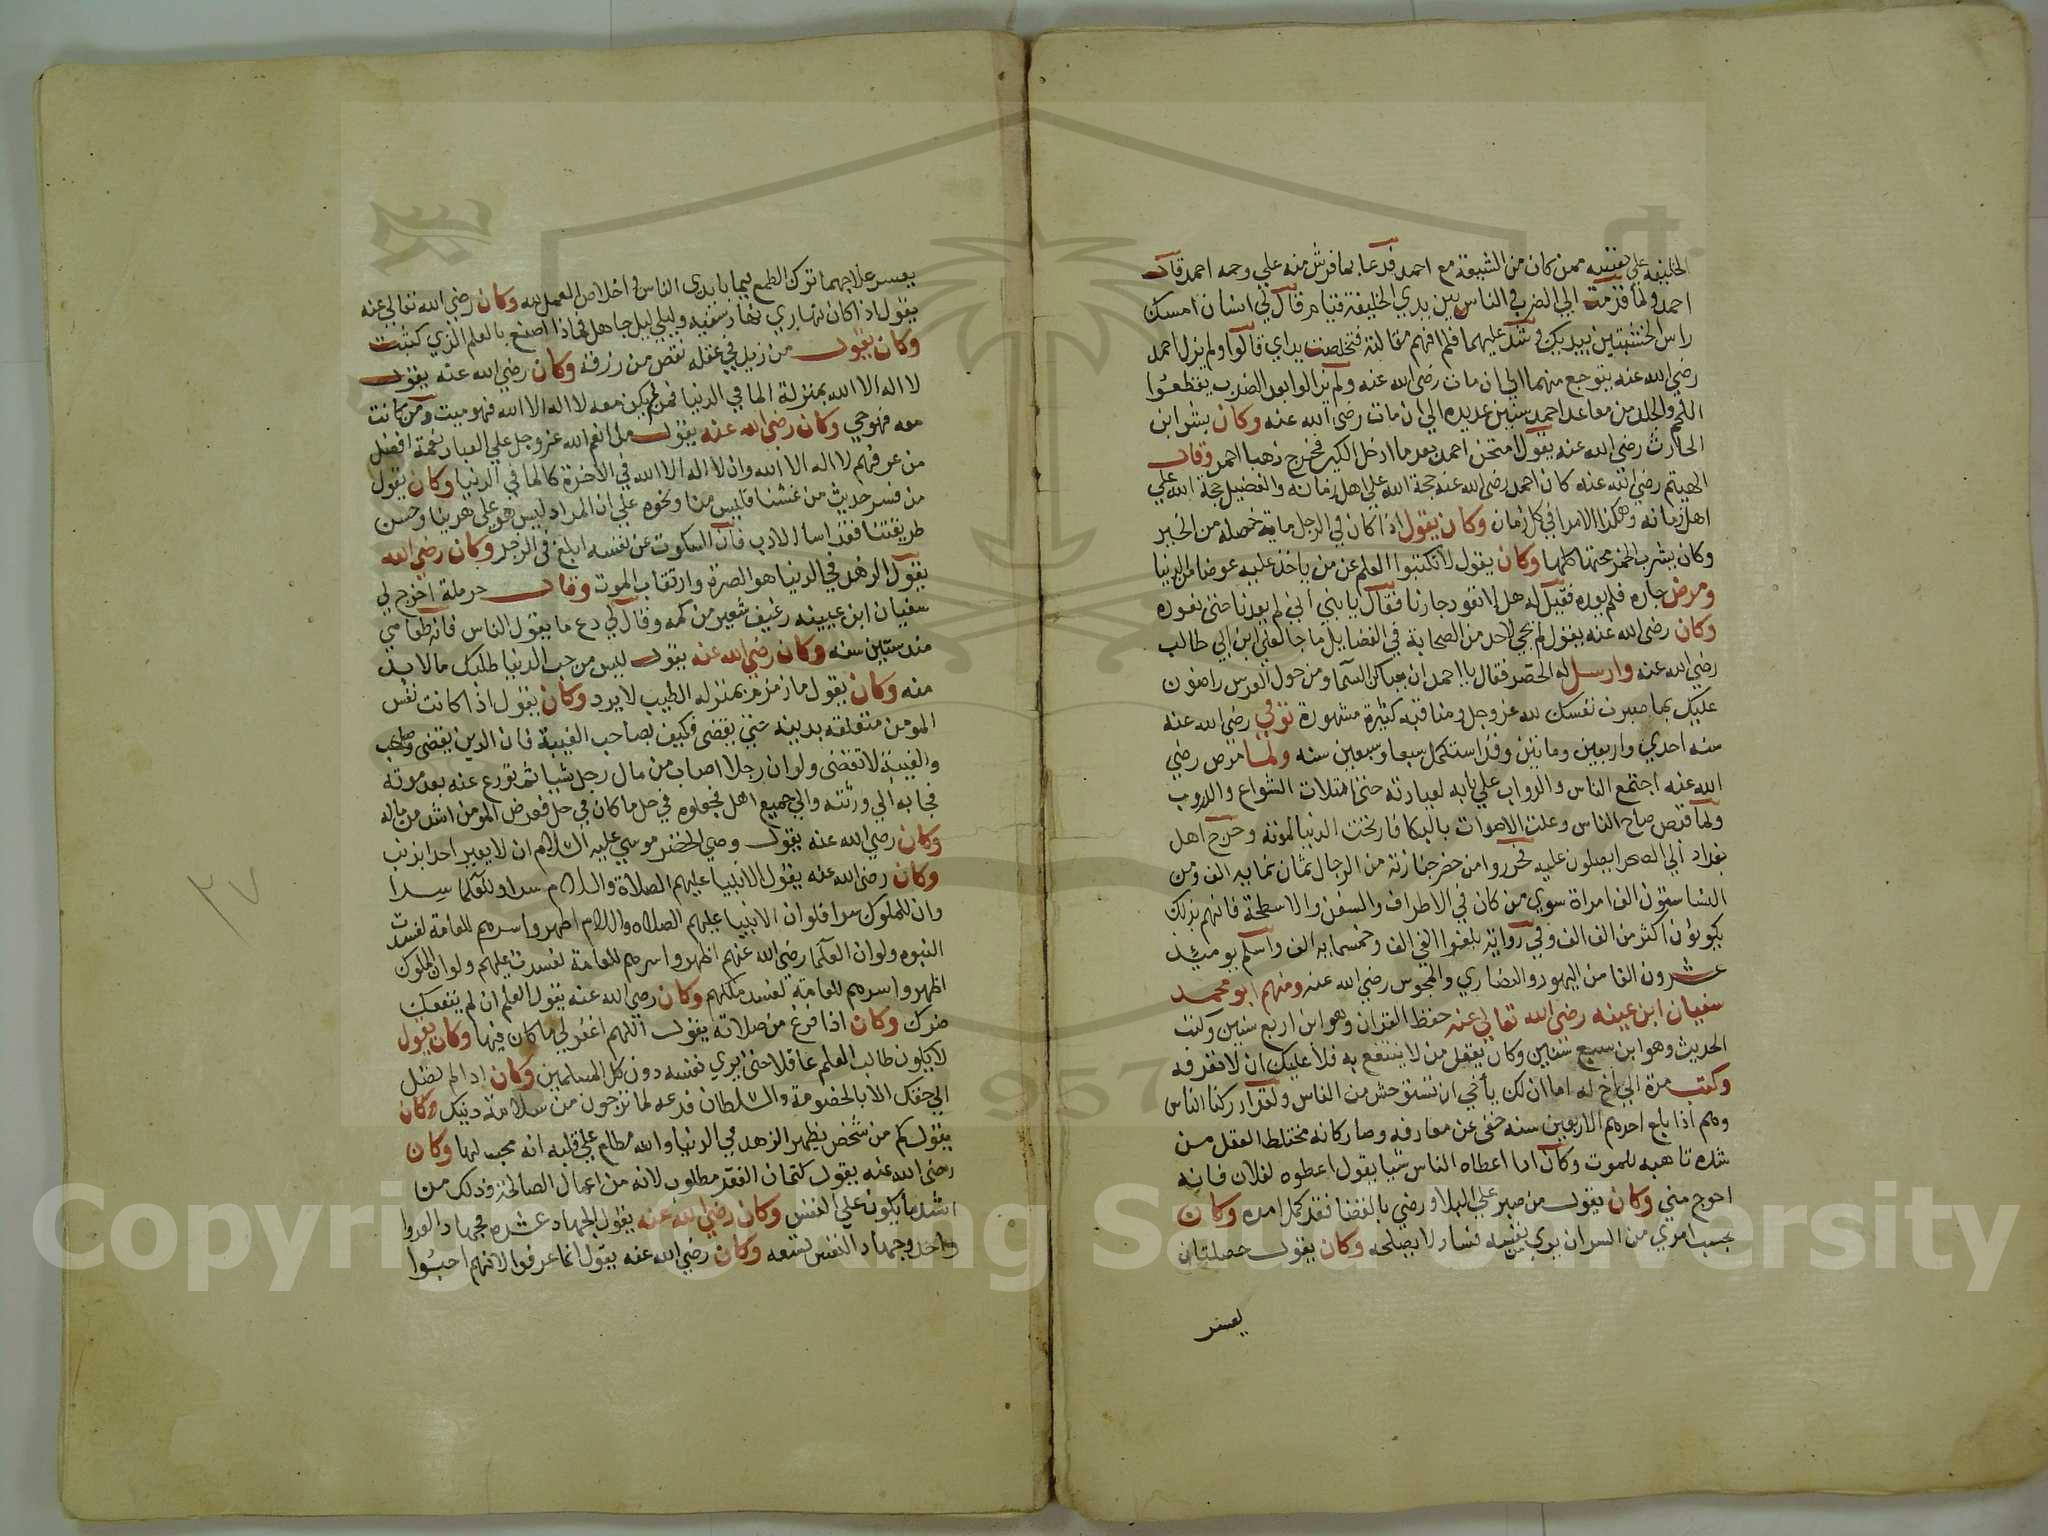 الخليفة علي نفسه ممن كان من الشيعة مع احمد فدعا بما فرش منه علي وجمه احمد قال
احمد ولما قدمت الي الضرب في الناس بين يدي الخليفة قيام قال لي انسان امسك
راس الخشبتين بيديك وشد عليهما فلم افهم مقالته فتخلصت يداي قالوا ولم يزل احمد
رضي الله عنه يتوجع منهما الي ان مات رضي الله عنه ولم يزالوا بعد الضرب يقطعوا
اللحم والجلد من مقاعد احمد سنين عديده الي ان مات رضي الله عنه وكان بشر ابن
الحارث رضي الله عنه يقول امتحن احمد بعد ما ادخل الكير فخرج ذهبا احمر وقال
الهيثم رضي الله عنه كان احمد رضي الله عنه حجة الله علي اهل زمانه والفضيل حجة الله علي
اهل زمانه وهكذا الامر في كل زمان وكان يقول اذا كان في الرجل ماية خصلة من الخير
وكان يشرب الخمر محتها كلها وكان يقول لا تكتبوا العلم عن من ياخذ عليه عوضا من الدنيا
ومرض جاره فلم يعده فقيل له هلا تعود جارنا فقال يا بني انه لم يعدنا حتي نعوده
وكان رضي الله عنه يقول لم يجي لاحد من الصحابة في الفضايل ما جا لعلي ابن ابي طالب
رضي الله عنه وارسل له الخضر فقال يا احمد ان ساكن السما ومن حول العرش راضون
عليك بما صبرت نفسك لله عز وجل ومناقبه كثيرة مشهورة توفي رضي الله عنه
سنه احدي واربعين وماتين وقد استكمل سبعا وسبعين سنه ولما مرض رضي
الله عنه اجتمع الناس والدواب علي بابه لعيادته حتي امتلات الشوارع والدروب
ولما قبض صاح الناس وعلت الاصوات بالبكا وارتجت الدنيا لموته وخرج اهل
بغداد الي الصحرا يصلون عليه فحرروا من حضر جنازته من الرجال ثمان ماية الف ومن
النسا ستون الف امراة سوي من كان في الاطراف والسفن والاسطحة فانهم بذلك
يكونون اكثر من الف الف وفي رواية بلغوا الفي الف وخمسماية الف واسلم يوميذ
عشرون الفا من اليهود والنصاري والمجوس رضي الله عنه ومنهم ابو محمد
سفيان ابن عيينه رضي الله تعالي عنه حفظ القران وهو ابن اربع سنين وكتب
الحديث وهو ابن سبع سنين وكان يقول من لا ينتفع به فلا عليك ان لا تعرفه
وكتب مرة الي اخ له اما ان لك يا اخي ان تستوحش من الناس ولقد ادركنا الناس
وهم اذا بلغ احدهم الاربعين سنه خفي عن معارفه وصار كانه مختلط العقل من
شدة تاهبه للموت وكان اذا اعطاه الناس شيا يقول اعطوه لفلان فانه
احوج مني وكان يقول من صبر علي البلا ورضي بالقضا فقد كمل امره وكان
بحسب امري من الشر ان يري بنفسه فسادا لا يصلحه وكان يقول خصلتان
يعسر
يعسر علاجهما ترك الطمع فيما بايدي الناس واخلاص العمل لله وكان رضي الله تعالي عنه
يقول اذا كان نهاري نهار سفيه وليلي ليل جاهل فماذا اصنع بالعلم الذي كتبت
وكان يقول من زيد في عقله نقص من رزقه وكان رضي الله عنه يقول
لا اله الا الله بمنزلة الما في الدنيا فمن لم يكن معه لا اله الا الله فهو ميت ومن كانت
معه فهو حي وكان رضي الله عنه يقول ما انعم الله عز وجل علي العباد نعمة افضل
من عرفهم لا اله الا الله وان لا اله الا الله في الاخرة كالما في الدنيا وكان يقول
من فسر حديث من غشنا فليس منا ونحوه علي ان المراد ليس هو علي هدينا وحسن
طريقتنا فقد اسا الادب فان السكوت عن تفسيره ابلغ في الزجر وكان رضي الله
يقول الزهد في الدنيا هو الصبر وارتقاب الموت وقال حرملة اخرج لي
سفيان ابن عيينه رغيف شعير من كمه وقال لي دع ما يقول الناس فانه طعامي
منذ ستين سنه وكان رضي الله عنه يقول ليس من حب الدنيا طلبك ما لا بد
منه وكان يقول ما زمزم بمنزلة الطيب لا يرد وكان يقول اذا كانت نفس
المومن متعلقة بدينه حتي يقضي فكيف بصاحب الغيبة فان الدين يقضي وصاحب
والغيبة لا تقضي ولو ان رجلا اصاب من مال رجل شيا ثم تورع عنه بعد موته
فجا به الي ورثته والي جميع اهل فجعلوه في حل ما كان في حل فعرض المومن اشد من ماله
وكان رضي الله عنه يقول وصي الخضر موسي عليه السلام ان لا يعير احدا بذنب
وكان رضي الله عنه يقول الانبيا عليهم الصلاة والسلام سرا وللعلما سرا
وان للملوك سرا فلو ان الانبيا عليهم الصلاه والسلام اظهروا سرهم للعامة لفسدت
النبوه ولو ان العلما رضي الله عنهم اظهروا سرهم للعامة لفسدت علمهم ولو ان الملوك
اظهروا سرهم للعامة لفسد ملكهم وكان رضي الله عنه يقول العلم ان لم ينفعك
ضرك وكان اذا فرغ من صلاته يقول اللهم اغفر لي ما كان فيها وكان يقول
لا يكون طالب العلم عاقلا حتي يري نفسه دون كل المسلمين وكان اذا لم تصل
الي حقك الا بالخصومة والسلطان فدعه لما ترجون من سلامة دينك وكان
يقول كم من شخص يظهر الزهد في الدنيا والله مطلع علي قلبه انه محب لها وكان
رضي الله عنه يقول كتمان الفقر مطلوب لانه من اعمال الصالحة وذلك من
اشد ما يكون علي النفس وكان رضي الله عنه يقول الجهاد عشرة فجهاد العدوا
واحد وجهاد النفس تسعه وكان رضي الله عنه يقول انما عرفوا لانهم احبوا
٢٧
Copyright © King Saud University
1957